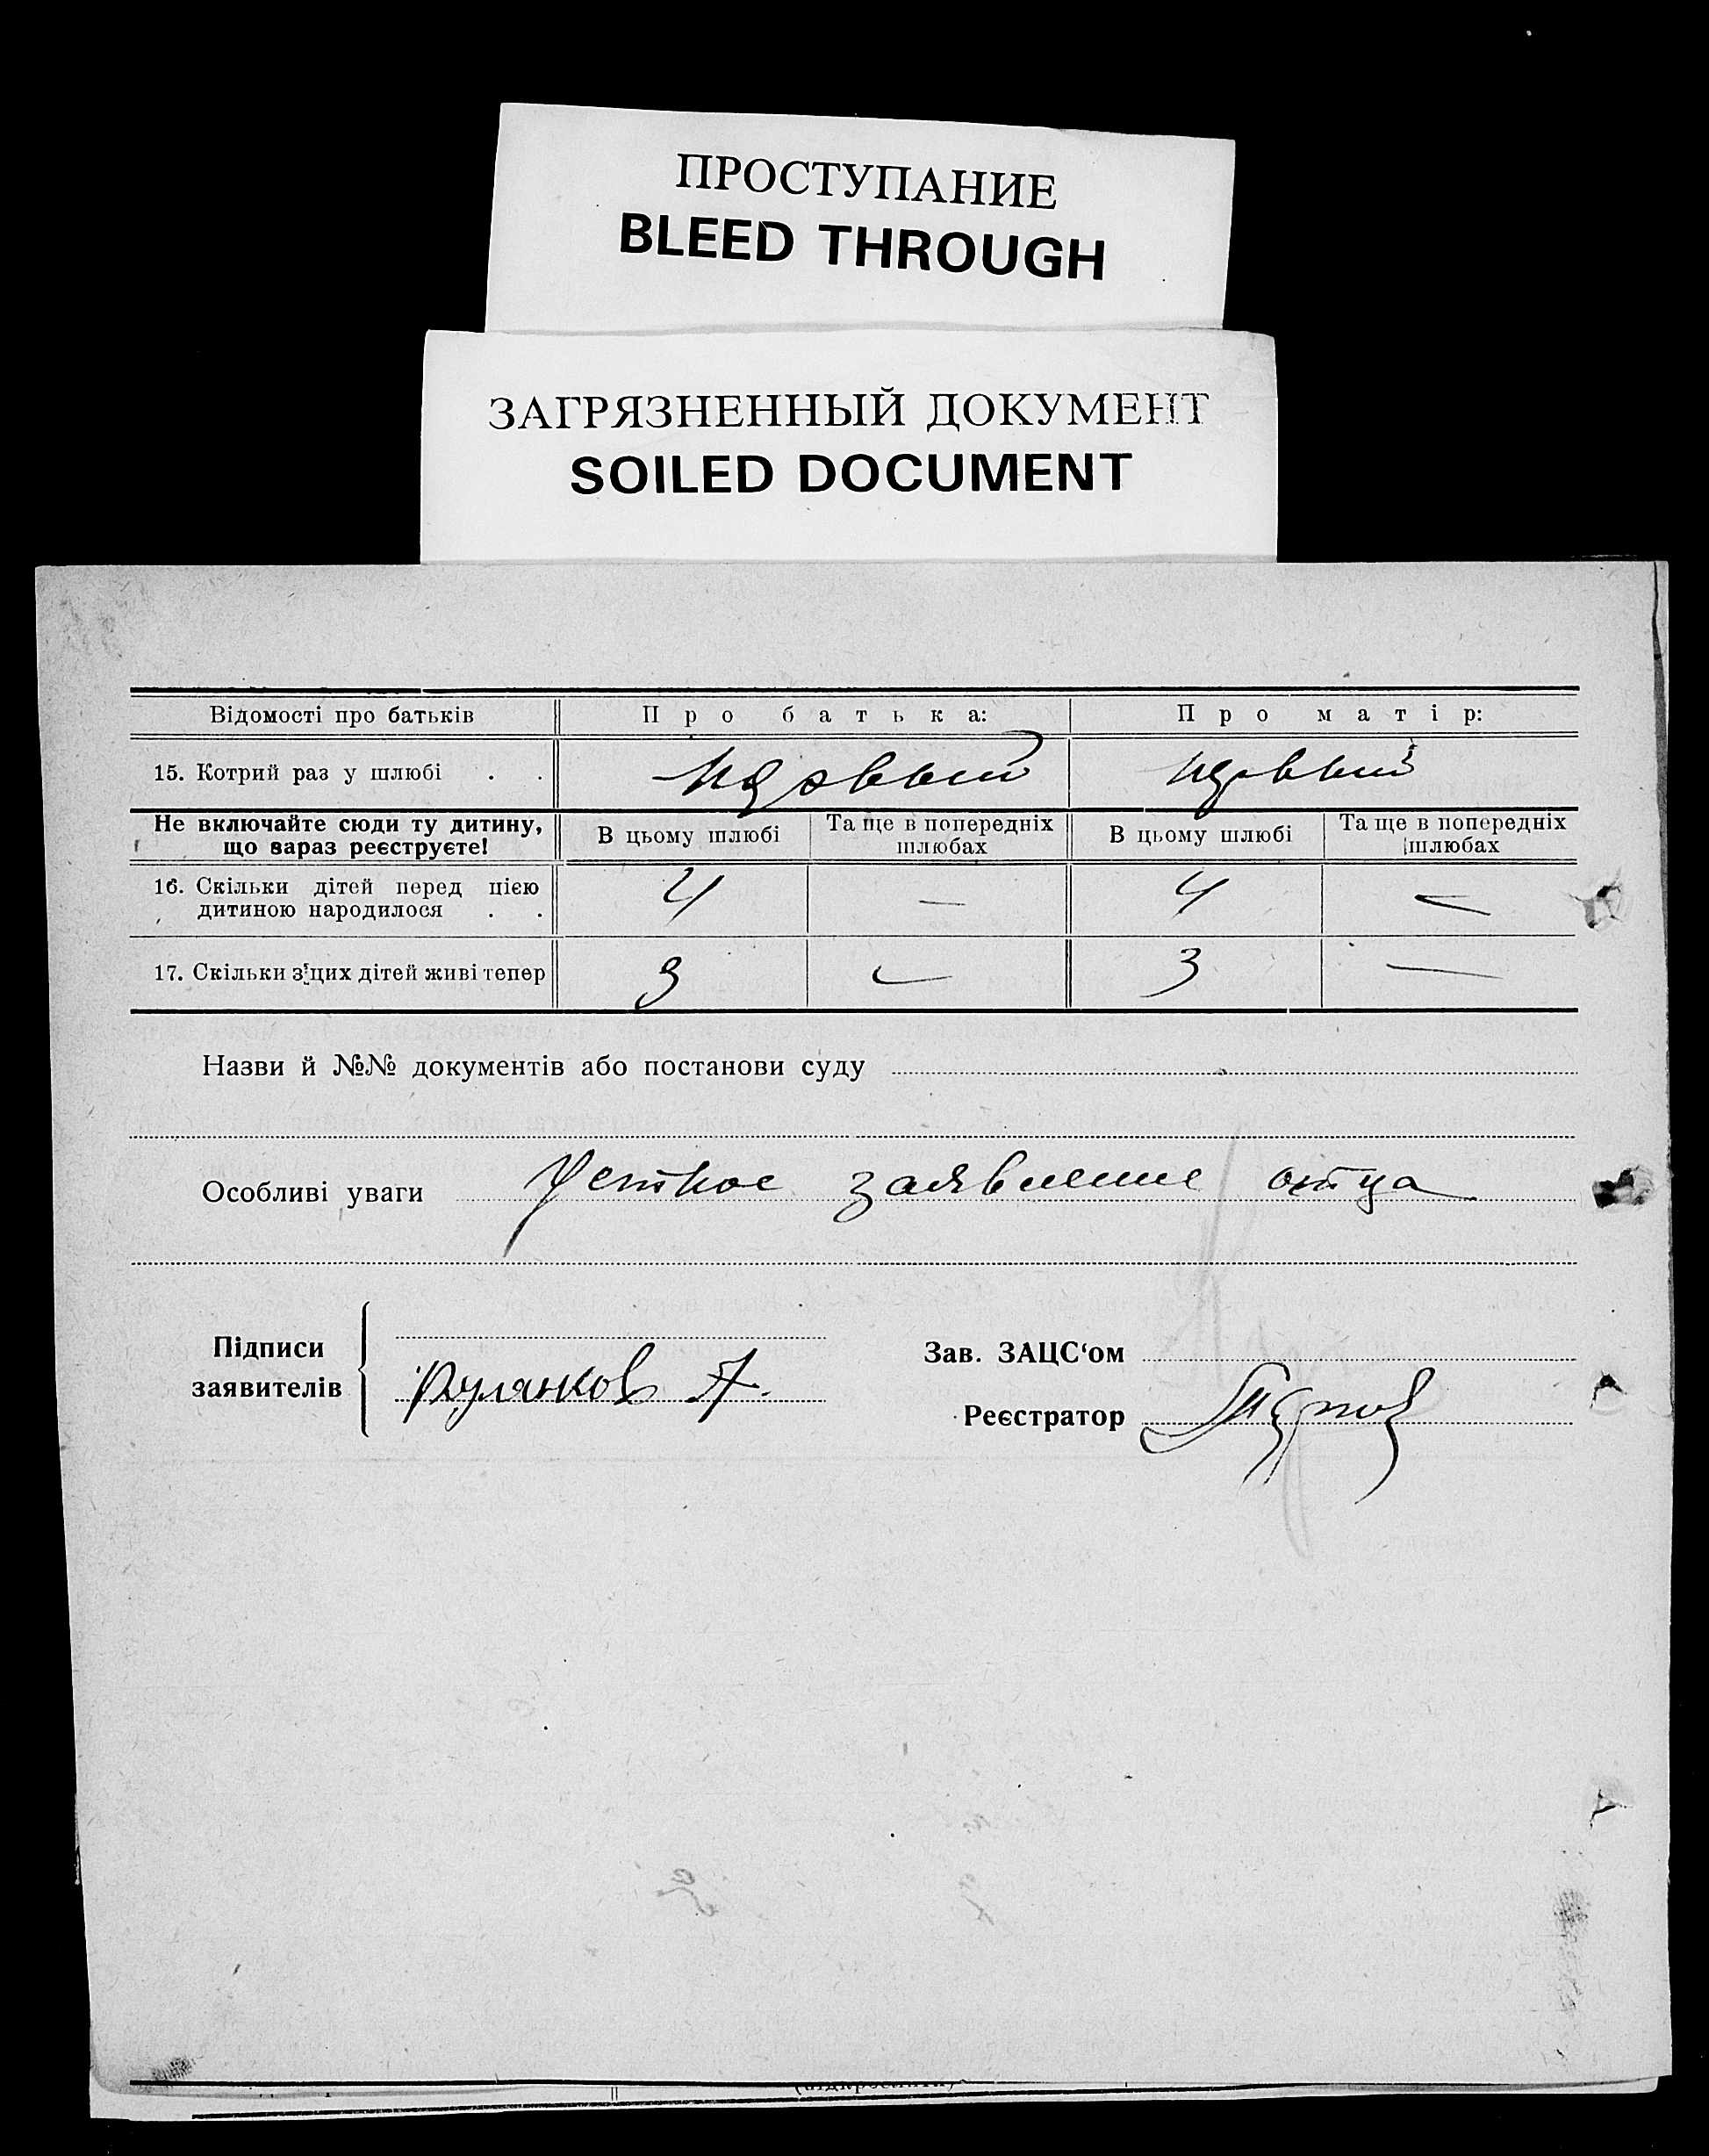 ПРОСТУПАНИЕ
BLEED THROUGH
ЗАГРЯЗНЕННЫЙ ДОКУМЕНТ
SOILED DOCUMENT
Відомості про батьків Про батька: Про матір:
15. Котрий раз у шлюбі . . первый первый
Не включайте сюди ту дитину, що зараз реєструєте! В цьому шлюбі Та ще в попередніх шлюбах В цьому шлюбі Та ще в попередніх шлюбах
16. Скільки дітей перед цією дитиною народилося . . 4 — 4 —
17. Скільки з цих дітей живі тепер 3 — 3 —
Назви й №№ документів або постанови суду
Особливі уваги Устное заявление отца
Підписи заявителів
Зав. ЗАЦС‘ом
Реєстратор